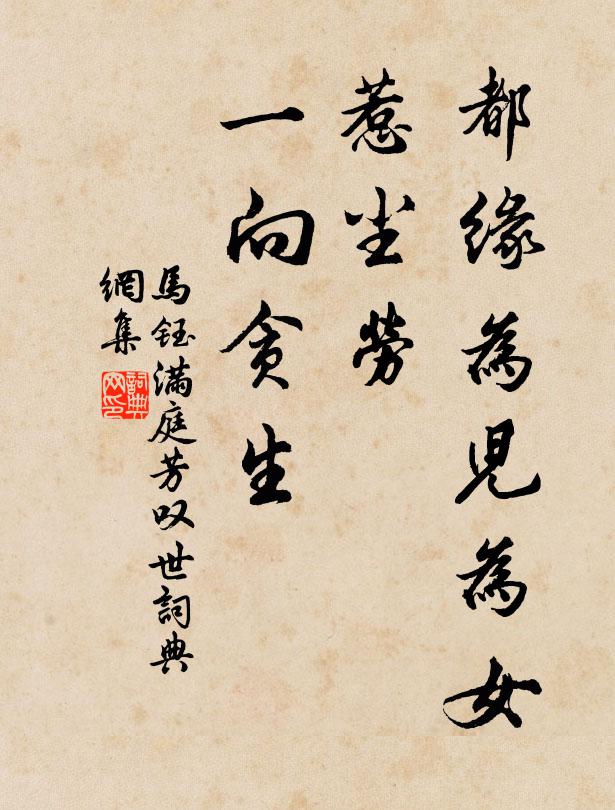 都緣為兒為女
惹尘勞
一向贪生
馬鈺满庭芳叹世詞典
網集
詞典
网印